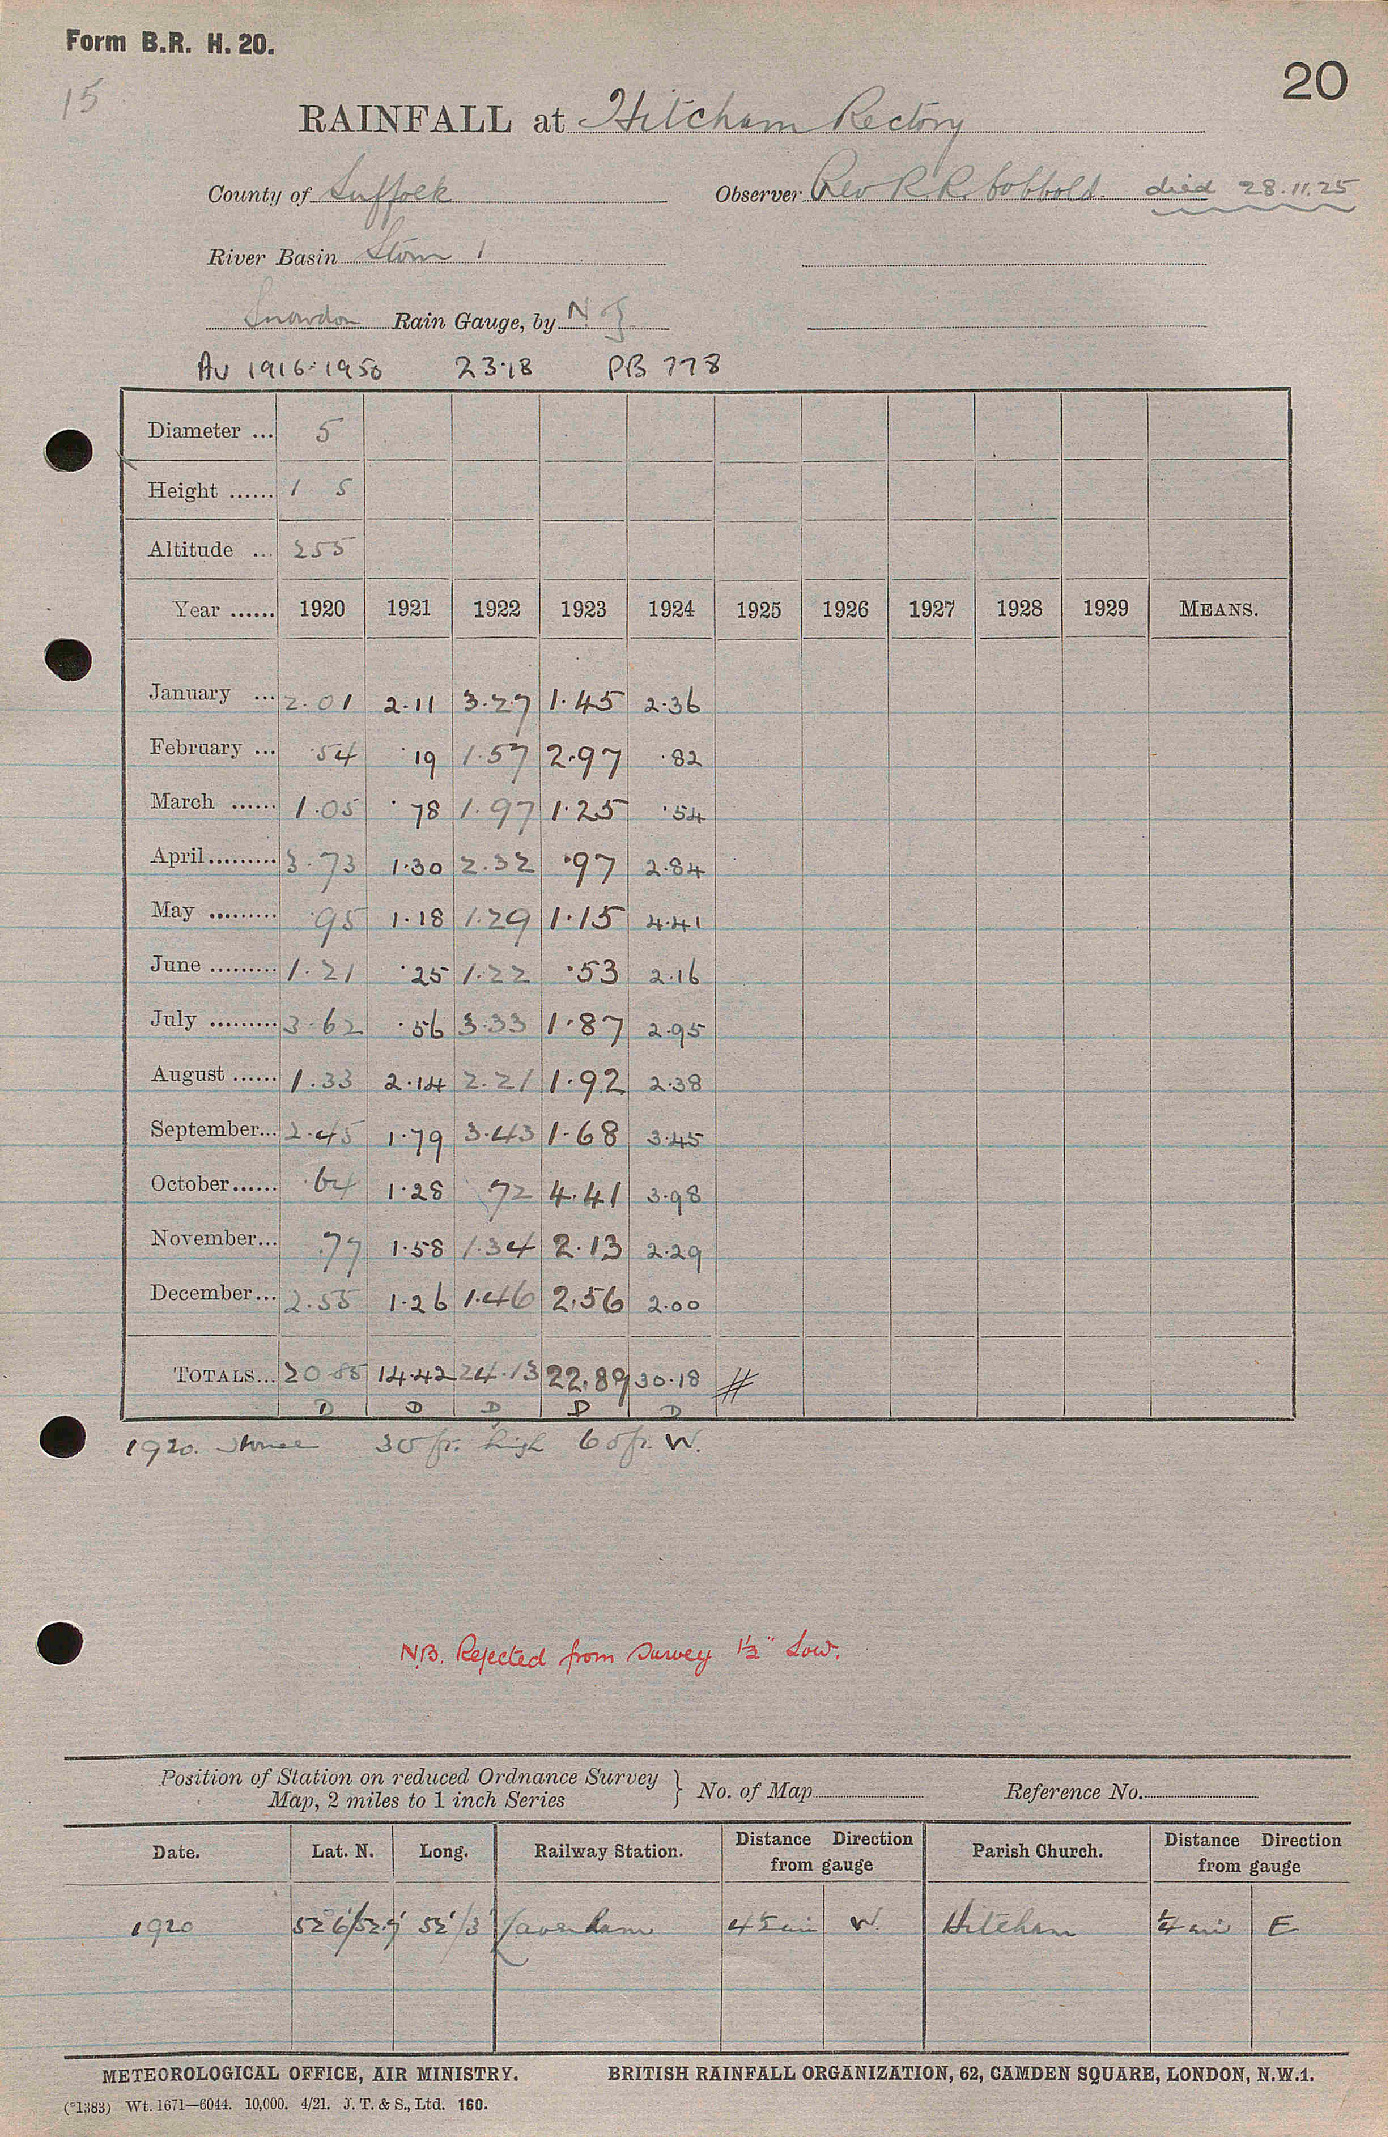 Form B.R. H. 20.
20
15
RAINFALL at Hitcham Rectory
County of Suffolk Observer Rev R.R. Cobbold died 28.11.25
River Basin Stour 1
Snowdon Rain Gauge, by N & Z
Av 1916-1950 23.18 PB 778
Diameter ... 5
Height ...... 1 5
Altitude ... 255
Year ...... 1920 1921 1922 1923 1924 1925 1926 1927 1928 1929 MEANS.
January ... 2.01 2.11 3.27 1.45 2.36
February ... .54 .19 1.57 2.97 .82
March ...... 1.05 .78 1.97 1.25 .54
April......... 3.73 1.30 2.32 .97 2.84
May ......... .95 1.18 1.29 1.15 4.41
June ......... 1.21 .25 1.22 .53 2.16
July ......... 3.62 .56 3.33 1.87 2.95
August ...... 1.33 2.14 2.21 1.92 2.38
September... 2.45 1.79 3.43 1.68 3.45
October...... .64 1.28 .72 4.41 3.98
November... .77 1.58 1.34 2.13 2.29
December... 2.55 1.26 1.46 2.56 2.00
TOTALS... 20.85 14.42 24.13 22.89 30.18 #
D D D D D
1920. House 30 ft. high 60 ft. W.
N.B. Rejected from Survey 1½" Low.
Position of Station on reduced Ordnance Survey
Map, 2 miles to 1 inch Series } No. of Map Reference No.
Date. Lat. N. Long. Railway Station. Distance Direction from gauge Parish Church. Distance Direction from gauge
1920 Lavenham W. Hitcham ¼ mi E
METEOROLOGICAL OFFICE, AIR MINISTRY. BRITISH RAINFALL ORGANIZATION, 62, CAMDEN SQUARE, LONDON, N.W.1.
(*1383) Wt. 1671—6044. 10,000. 4/21. J. T. & S., Ltd. 160.